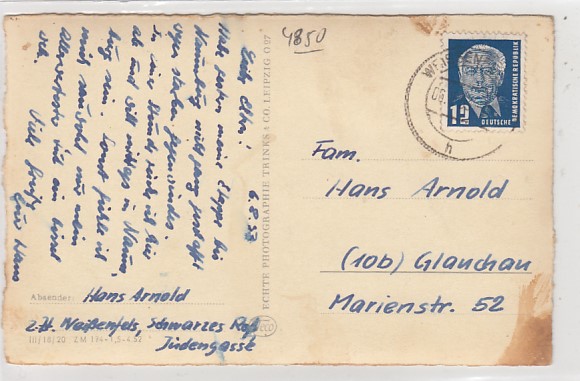 4850
6.8.53
Liebe Eltern!
Habe gestern meine Etappe bis
Naumburg nicht ganz geschafft
wegen starken Gegenwindes.
In einer Stunde reise ich hier
ab und will mittags in Naum-
burg sein. Sonst fühle ich
mich wohl, nur mein
ist ein bissel
Viele Grüße
Euer Hans
ECHTE PHOTOGRAPHIE TRINKS & CO. LEIPZIG O 27
Absender: Hans Arnold
z.Zt. Weißenfels, Schwarzes Roß
Judengasse
III/18/20 ZM 194-1,5-4.52
12
DEUTSCHE
DEMOKRATISCHE REPUBLIK
h
Fam.
Hans Arnold
(10b) Glauchau
Marienstr. 52